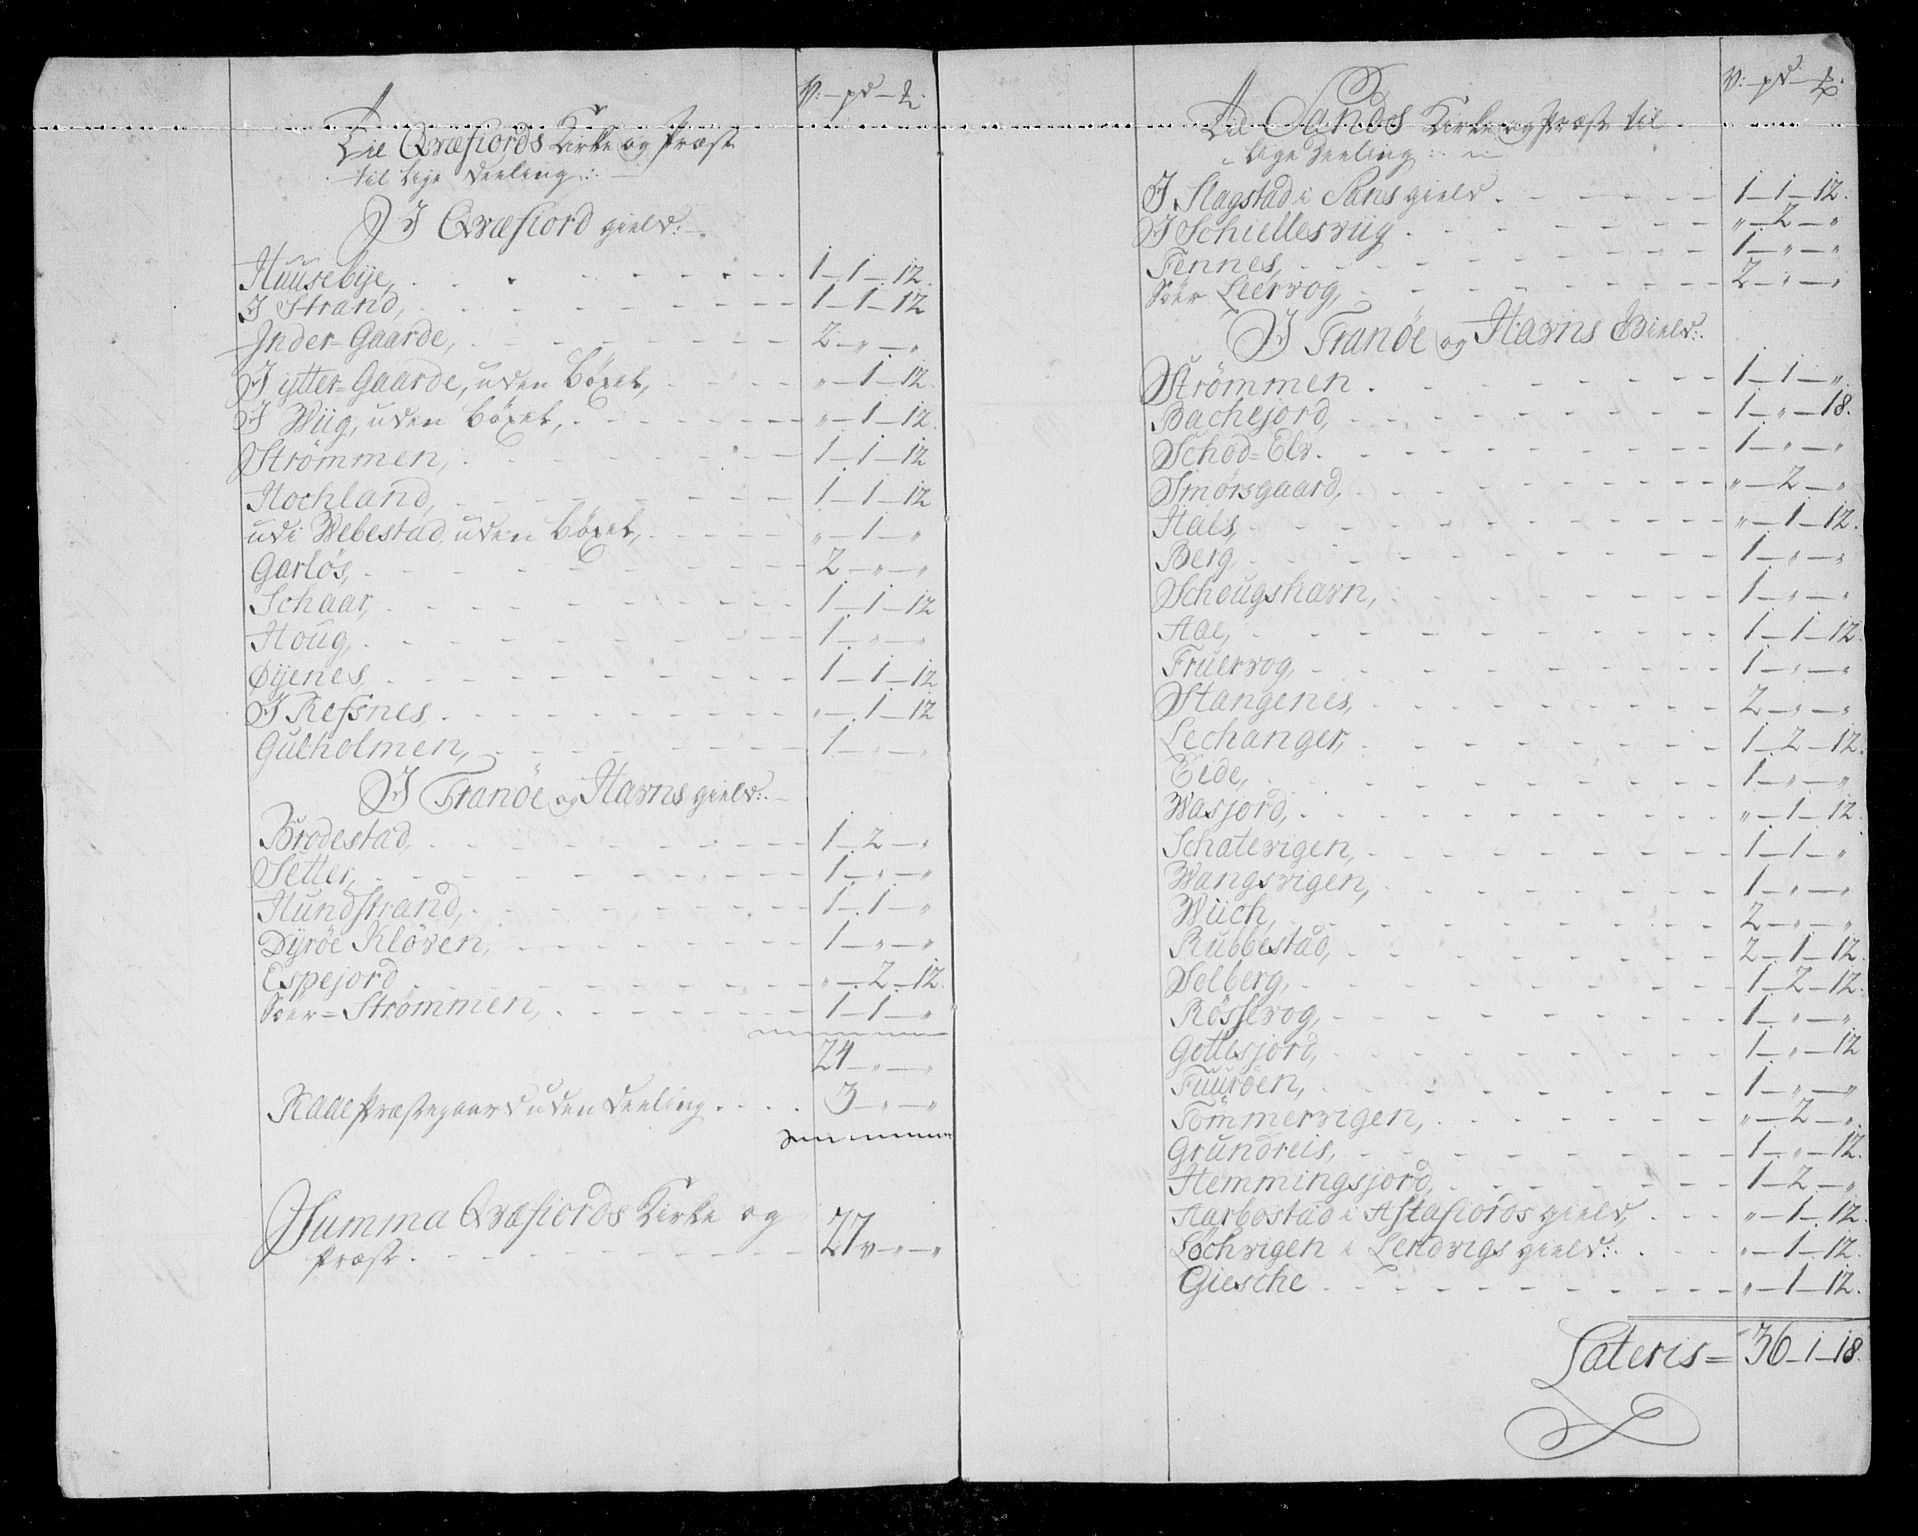 V: — pd — ℔:
Til Qvæfiords Kirke og Præst
til lige Deeling :
I Qvæfiord gield:
Huusebye, 1 — 1 — 12.
I Strand, 1 — 1 — 12
Inder-Gaarde, 2 — " — "
I ytter-Gaarde, uden böxel, " — 1 — 12.
I Wiig, uden böxel, " — 1 — 12.
Strömmen, 1 — 1 — 12
Hochland, 1 — 1 — 12
udi Webestad uden böxel, " — 1 — "
Garlös, 2 — " — "
Schaar, 1 — 1 — 12
Houg, 1 — " — "
Øyenes 1 — 1 — 12
I Refsnes " — 1 — 12
Gulholmen, 1 — " — "
I Tranöe og Havns gield:
Brodestad, 1 — 2 — "
Setter, 1 — " — "
Hundstrand, 1 — 1 — "
Dyröe Klöven, 1 — " — "
Espejord " — 2 — 12.
Sör-Strömmen, 1 — 1 — "
24 — " — "
Præstegaard uden Deeling. 3 — " — "
Summa Qvæfiords Kirke og
Præst. 27 v — " — "
V: — pd — ℔:
Til Sands Kirke og Præst til
lige Deeling :
I Slagstad i Sans gield. 1 — 1 — 12.
I Schiellesviig " — 2 — "
Fennes, 1 — " — "
Sör Leervog, 2 — " — "
I Tranöe og Havns Gield:
Strömmen. 1 — 1 — "
Bachejord, 1 — " — 18.
Schod-Elv. 1 — " — "
Smörsgaard, " — 2 — "
Hals, " — 1 — 12.
Berg, 1 — " — "
Schougshavn, 1 — " — "
Aae, 1 — 1 — 12.
Fruervog, 1 — " — "
Stangenes, 2 — " — "
Lechanger, 1 — 2 — 12.
Eide, 1 — " — "
Wasjord, " — 1 — 12.
Schatevigen, 1 — 1 — "
Wangsvigen, 1 — " — "
Wiich, 2 — " — "
Rubbestad, 2 — 1 — 12.
Solberg, 1 — 2 — 12.
Rössevog, 1 — " — "
Gottesjord, 1 — " — 12
Tuuröen, 1 — " — "
Tömmervigen, " — 2 — "
Grundreis, 1 — " — 12.
Hemmingsjord, 1 — 2 — "
Aarbostad i Astafiords gield, " — 1 — 12.
Löchvigen i Lendvigs gield: " — 1 — 12.
Giesche " — 1 — 12.
Lateris = 36 — 1 — 18.